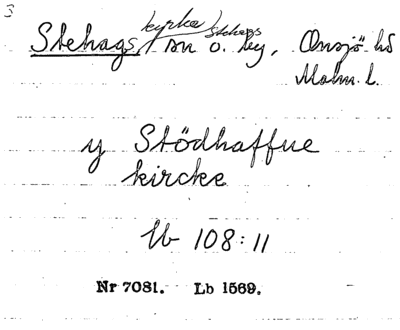 3
kyrka Stehags
Stehags sn o. by, Onsjö hd
Malm. l.
y Stödhaffue
kircke
Lb 108:11
Nr 7081. Lb 1569.